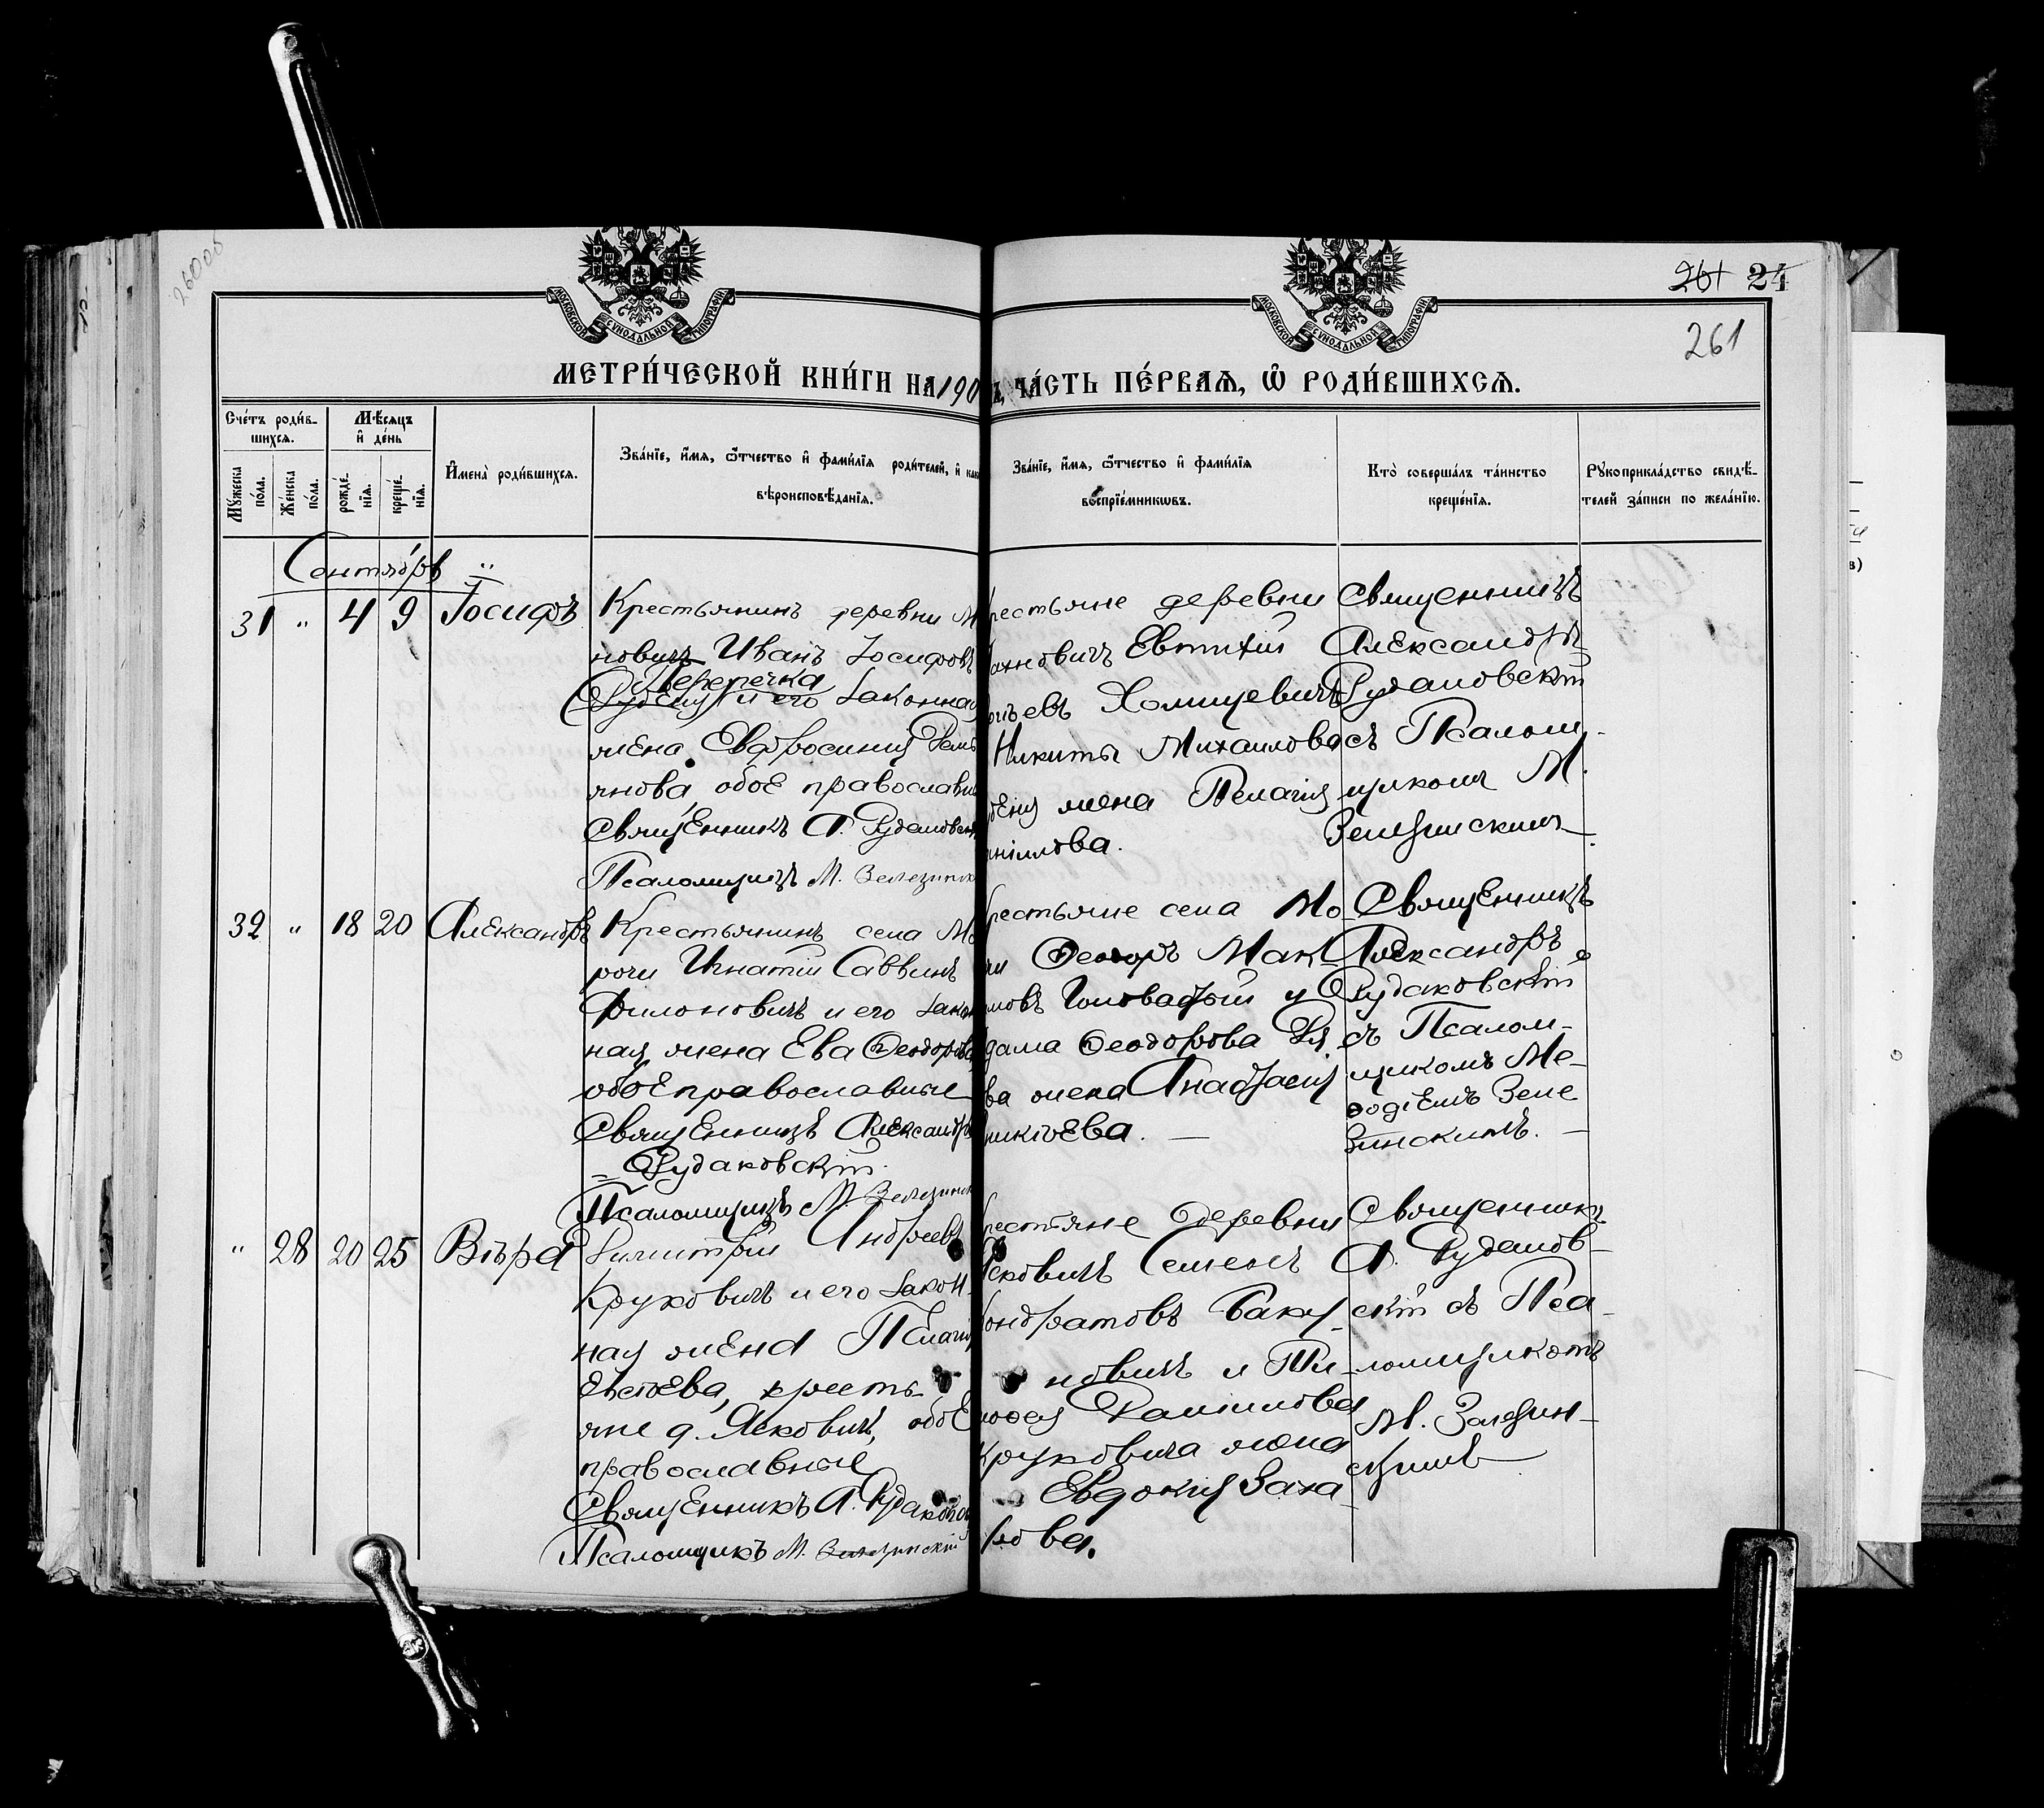 26005
МОСКОВСКОЙ СѴНОДАЛЬНОЙ ТИПОГРАФІИ
МОСКОВСКОЙ СѴНОДАЛЬНОЙ ТИПОГРАФІИ
261 24
261
МЕТРИ́ЧЕСКОЙ КНИ́ГИ НА 190
ЧА́СТЬ ПЕ́РВАЯ, Ѡ҆ РОДИ́ВШИХСЯ.
Сче́тъ роди́в-
шихся.
Мꙋ́жеска
по́ла.
Же́нска
по́ла.
Мѣ́сяцъ
и҆ де́нь
рожде́-
нїя.
креще́-
нїя.
И҆мена̀ роди́вшихся.
Зва́нїе, и҆́мя, ѻ҆́тчество и҆ фами́лїя роди́телей, и҆ како
вѣроисповѣ́данїя.
Зва́нїе, и҆́мя, ѻ҆́тчество и҆ фами́лїя
воспрїе́мникѡвъ.
Кто̀ соверша́лъ та́инство
креще́нїя.
Рꙋкоприкла́дство свидѣ́-
телей за́писи по жела́нїю.
Сентябрь
31 " 4 9 Іосифъ
Крестьянинъ деревни М
новичъ Иванъ Іосифовъ
Переречка
и его закон­ная
жена Евфросинія Демь
янова, обое православн
Священникъ А. Рудаковск
Псаломщикъ М. Зелезинск
рестьяне деревни
ахновичъ Евтихій
евъ Хомицевичъ
Никиты Михаилова
жена Пелагія
нилова.
Священникъ
Александръ
Рудаковскій
съ Псалом-
щикомъ М.
Зелезинскимъ
32 " 18 20 Александръ
Крестьянинъ села Мо
рочи Игнатій Саввинъ
Филоновичъ и его закон
ная жена Ева Ѳеодорова
обое православные
Священникъ Александръ
Рудаковскій.
Псаломщикъ М. Зелезинск
рестьяне села Мо-
чи Ѳеодоръ Мак-
имовъ Головатый и
дама Ѳеодорова
ва жена Анастасія
никіева.
Священникъ
Александръ
Рудаковскій
съ Псалом-
щикомъ Ме-
ѳодіемъ Зеле
зинскимъ.
" 28 20 25 Вѣра
Димитрій Андреевъ
Круковичъ и его закон-
ная жена Пелагія
Евстіева, кресть-
яне д. Ясковичъ, обое
православные
Священникъ А. Рудаковск
Псаломщикъ М. Зелезинскій
рестьяне деревни
сковичъ Семенъ
ондратовъ Баку-
новичъ и Ти-
моѳея Даниилова
Круковича жена
Евдокія Заха-
рова.
Священник
А. Рудаков-
скій съ Пса-
ломщикомъ
М. Зелезин-
скимъ